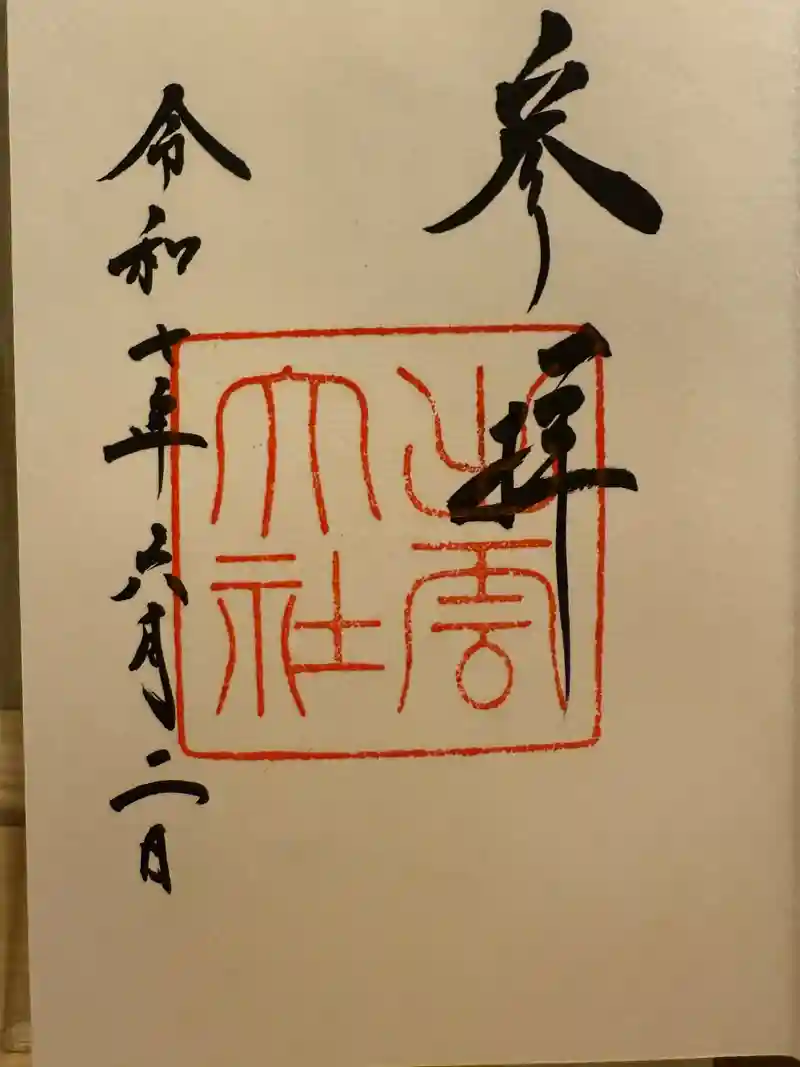 参拝
出雲
大社
令和七年六月二日